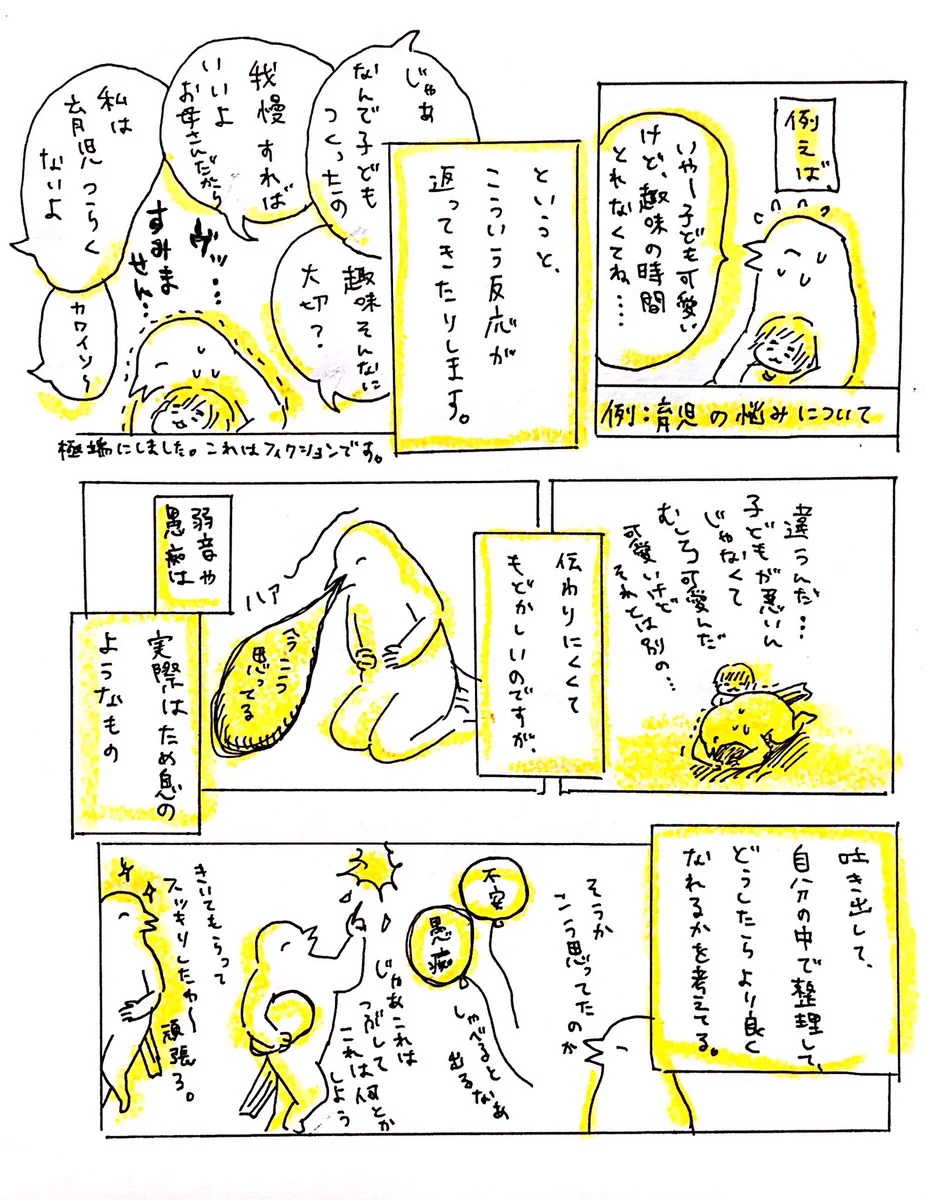 例えば
いやー子ども可愛い
けど、趣味の時間
とれなくてね…
例：育児の悩みについて
というと、
こういう反応が
返ってきたりします。
じゃあ
なんで子ども
つくったの
我慢すれば
いいよ
お母さんだから
私は
育児つらく
ないよ
趣味そんなに
大切？
カワイソ〜
ヴッ…
すみま
せん…
極端にしました。これはフィクションです。
違うんだ…
子どもが悪いん
じゃなくて
むしろ可愛んだ
可愛いけど
それとは別の…
伝わりにくくて
もどかしいのですが、
弱音や
愚痴は
ハア
今こう
思ってる
実際はため息の
ようなもの
吐き出して、
自分の中で整理して、
どうしたらより良く
なれるかを考えてる。
そうか
こう思ってたのか
不安
愚痴
しゃべると
出るなあ
じゃあこれは
つぶして
これは何とか
しよう
きいてもらって
スッキリしたわ〜
頑張ろ。